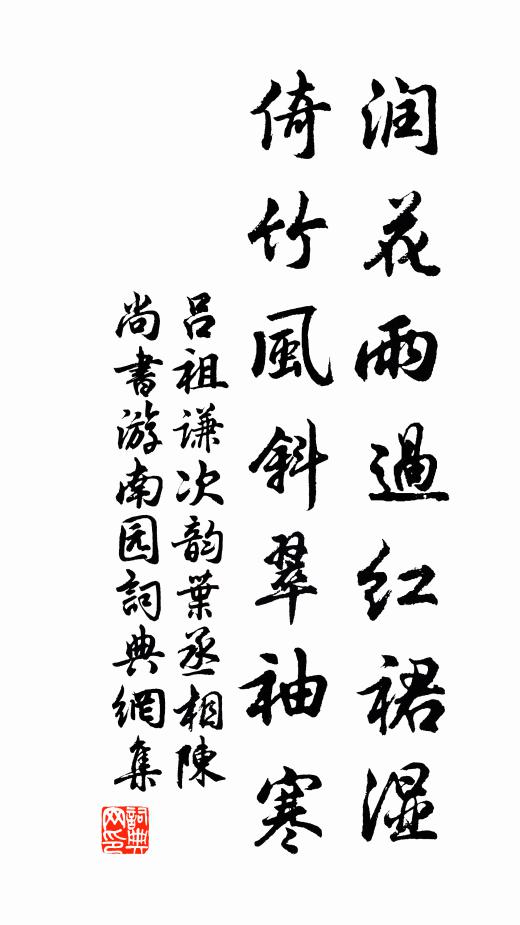 润花雨過红裙湿
倚竹風斜翠袖寒
吕祖谦次韵葉丞相陳
尚書游南园詞典網集
詞典网印